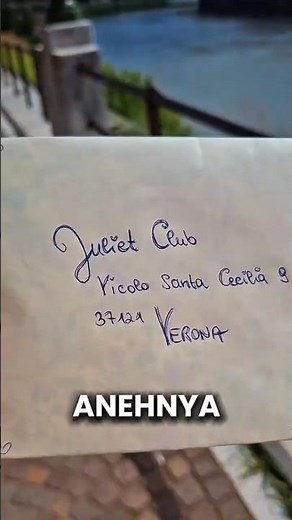 Juliet Club
Vicolo Santa Cecilia 9
37121 VERONA
ANEHNYA